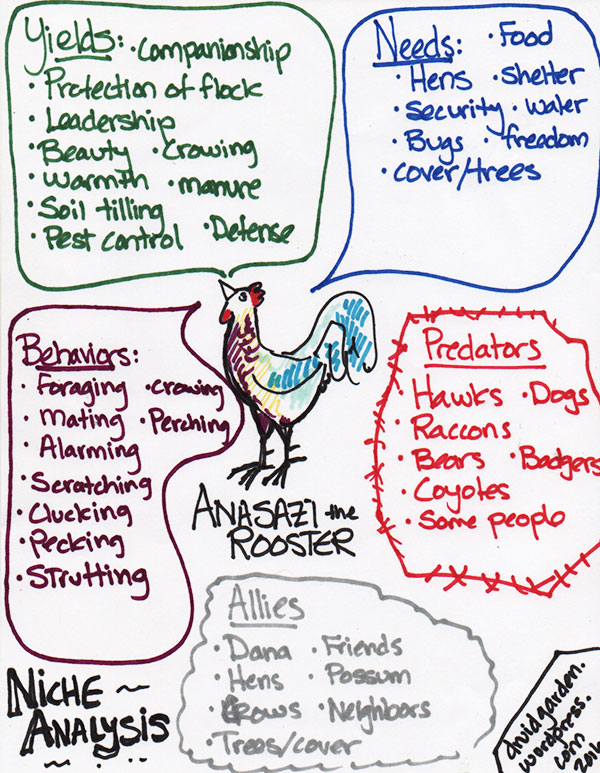 Yields: · Companionship
· Protection of flock
· Leadership
· Beauty · Crowing
· Warmth · manure
· Soil tilling
· Pest control · Defense
Needs: · Food
· Hens · Shelter
· Security · Water
· Bugs · freedom
· Cover/trees
Behaviors:
· Foraging · crowing
· Mating · Perching
· Alarming
· Scratching
· Clucking
· Pecking
· Strutting
Predators
· Hawks · Dogs
· Raccons
· Bears · Badgers
· Coyotes
· Some people
ANASAZI the
ROOSTER
Allies
· Dana · Friends
· Hens · Possum
· Crows · Neighbors
· Trees/cover
NICHE ~
ANALYSIS
druidgarden.
wordpress.
com
2016